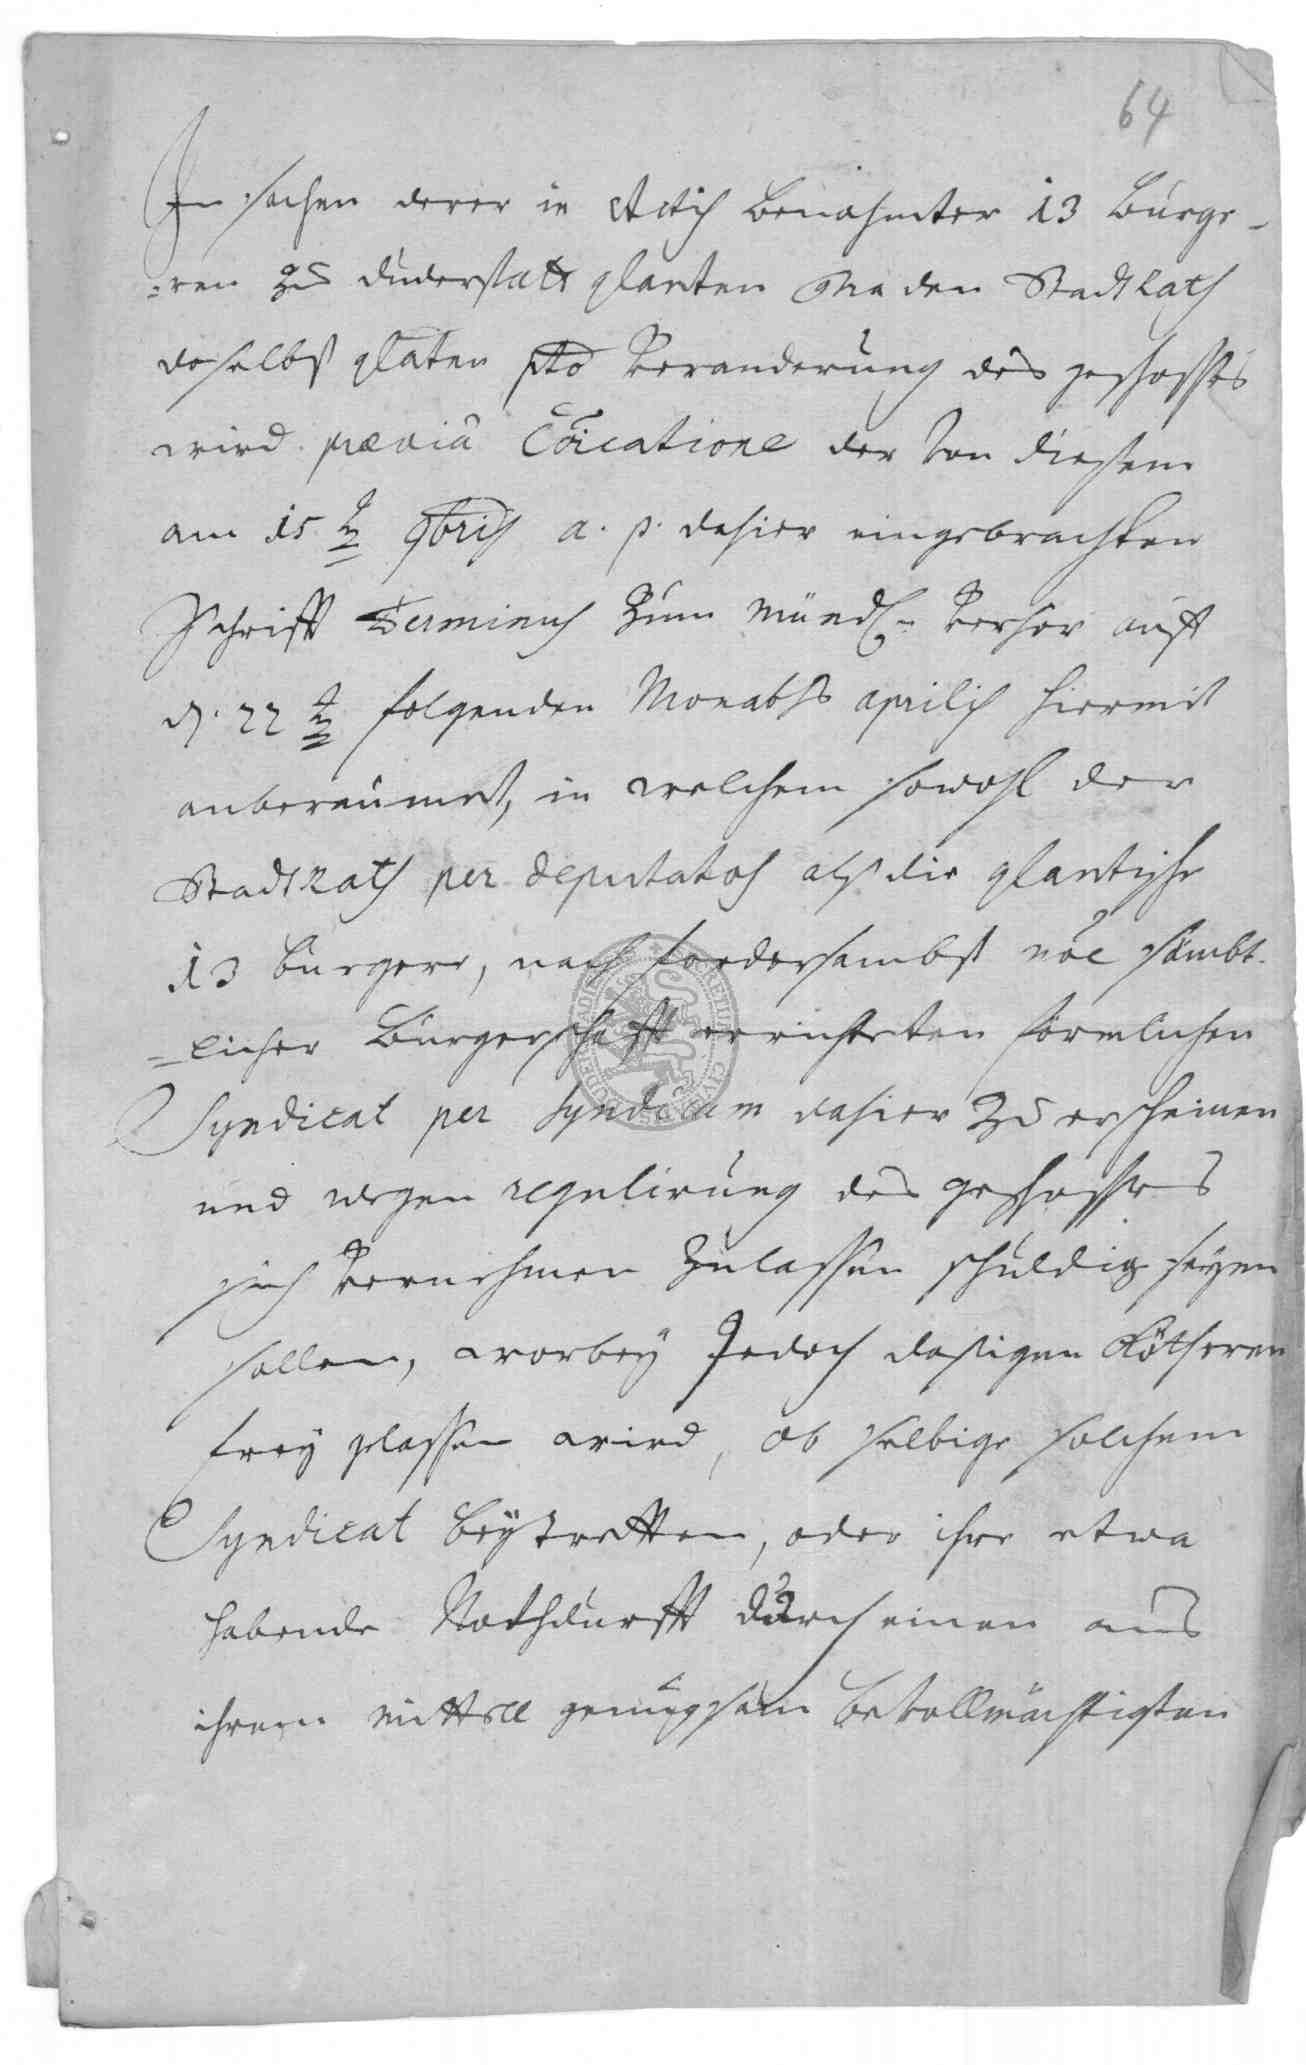 64
In sachen derer in Actis benahmter 13 bürge-
=ren zu duderstatt qlanten Wieder den StadtRath
daselbst qlaten pto Veranderung des geschosses
wird praeviâ Cōicatione der von diesem
am 15ten 9bris a. p. dahier eingebrachten
Schrifft Terminus zum mündl. Verhör auff
d. 22ten folgenden Monaths aprilis hiermit
anberaumet, in welchem sowohl der
StadtRath per deputatos alß die qlantische
13 bürgere, nach fordersambst nōe sämbt-
=licher Bürgerschafft errichteten förmlichen
Syndicat per Syndicum dahier zu erscheinen
und wegen regulirung des geschosses
sich Vernehmen zulassen schuldig seyen
sollen, worbey Jedoch dasigen Köthseren
frey glassen wird, ob selbige solchem
Syndicat beytretten, oder ihre etwa
habende Nothdurfft durch einen aus
ihrem mittel genugsam bevollmächtigten